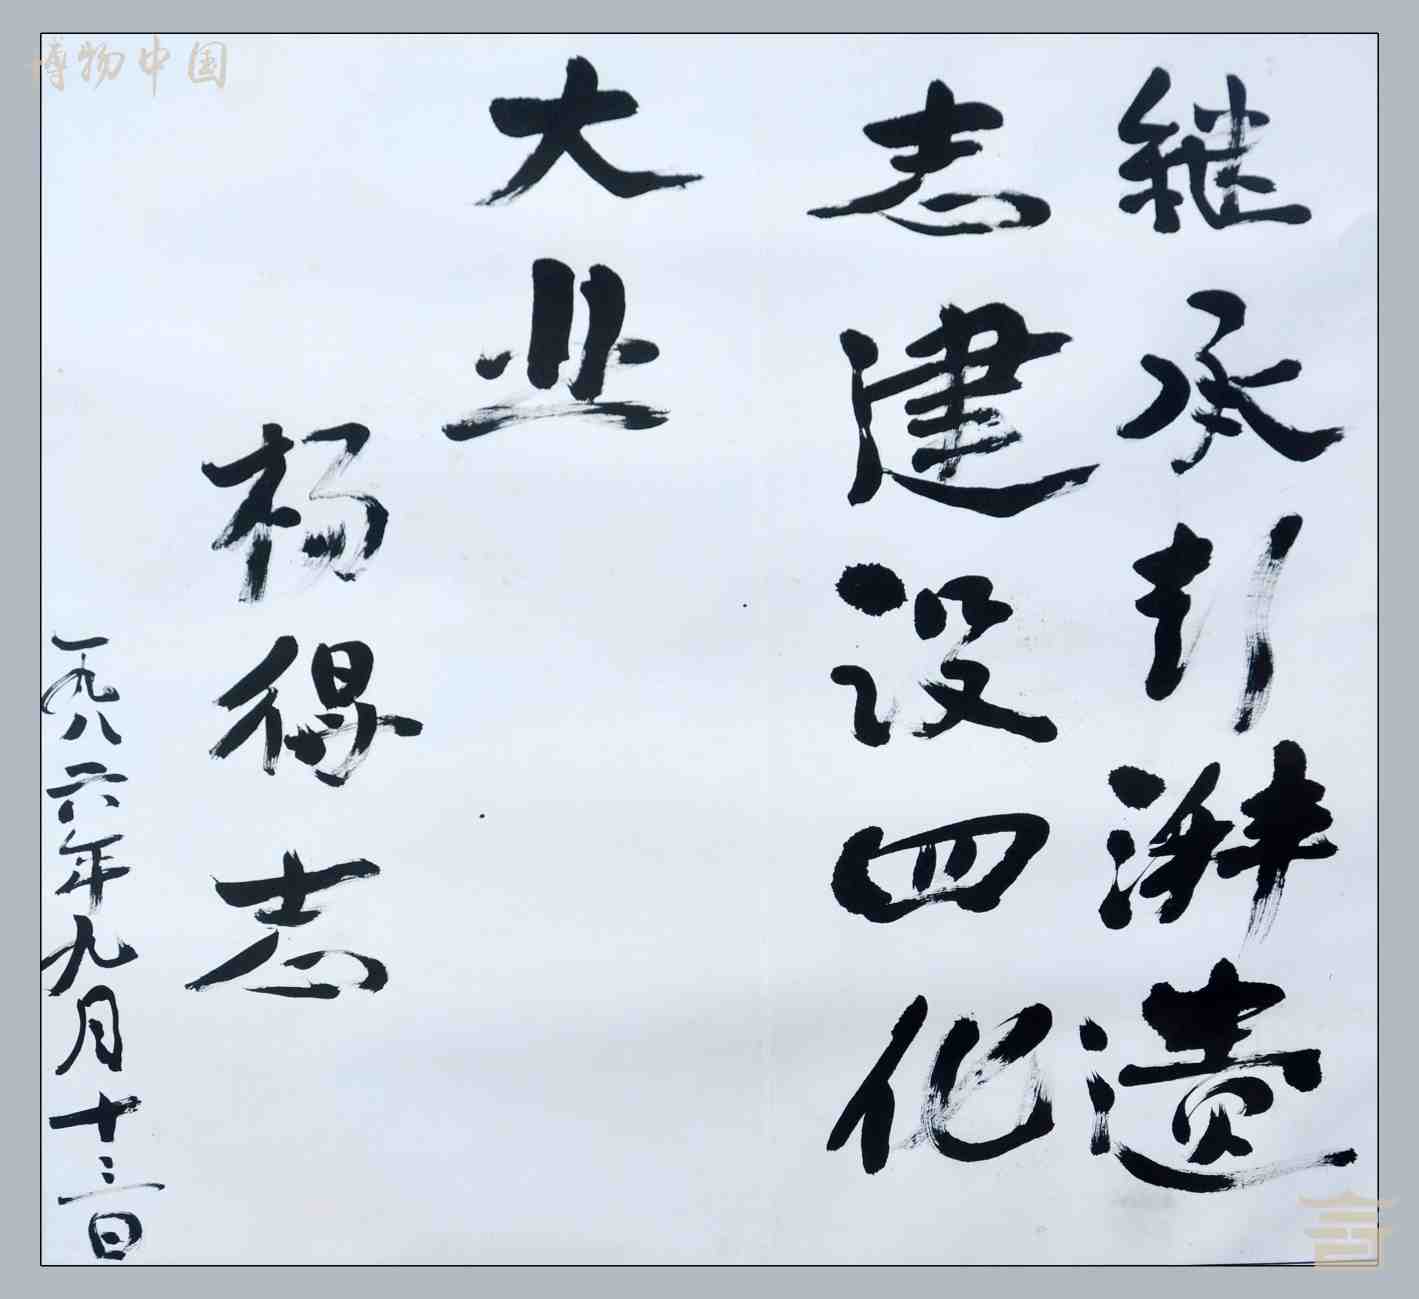 继承彭湃遗
志建设四化
大业
杨得志
一九八六年九月十三日
博物中国